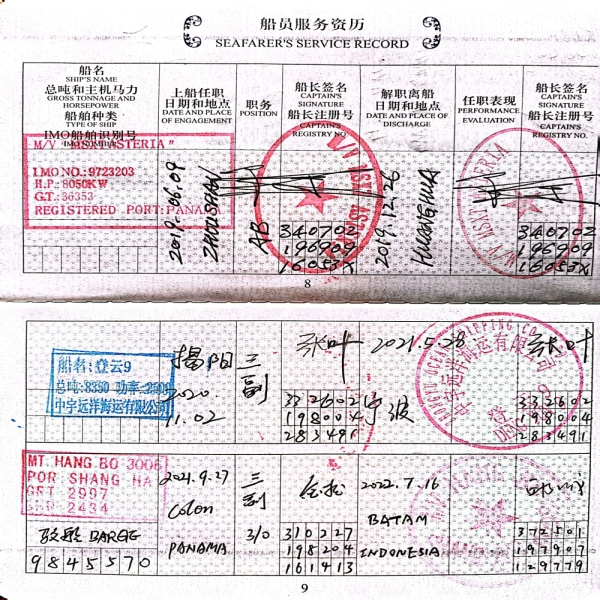 船员服务资历
SEAFARER'S SERVICE RECORD
船名
SHIP'S NAME
总吨和主机马力
GROSS TONNAGE AND
HORSEPOWER
船舶种类
TYPE OF SHIP
IMO船舶识别号
上船任职
日期和地点
DATE AND PLACE
OF ENGAGEMENT
职务
POSITION
船长签名
CAPTAIN'S
SIGNATURE
船长注册号
CAPTAIN'S
REGISTRY NO.
解职离船
日期和地点
DATE AND PLACE OF
DISCHARGE
任职表现
PERFORMANCE
EVALUATION
船长签名
CAPTAIN'S
SIGNATURE
船长注册号
CAPTAIN'S
REGISTRY NO.
IMO NO.: 9723203
H.P.: 8050KW
G.T.: 36353
REGISTERED PORT: PANAMA
2019.06.09
ZHOUSHAN
AB
340702
196909
16053X
2019.12.26
HUANGHUA
340702
196909
16053X
8
船名:登云9
总吨:8350 功率:2500
中宇远洋海运有限公司
揭阳
2020.
11.02
三副
张叶
332602
198004
283491
2021.5.28
宁波
中宇远洋海运有限公司
张叶
332602
198004
283491
MT. HANG BO 3006
POR: SHANG HA
GRT 2997
2434
BARGE
9845570
2021.9.27
Colon
PANAMA
三副
3/0
310227
198204
161413
2022.7.16
BATAM
INDONESIA
372501
197907
129779
9